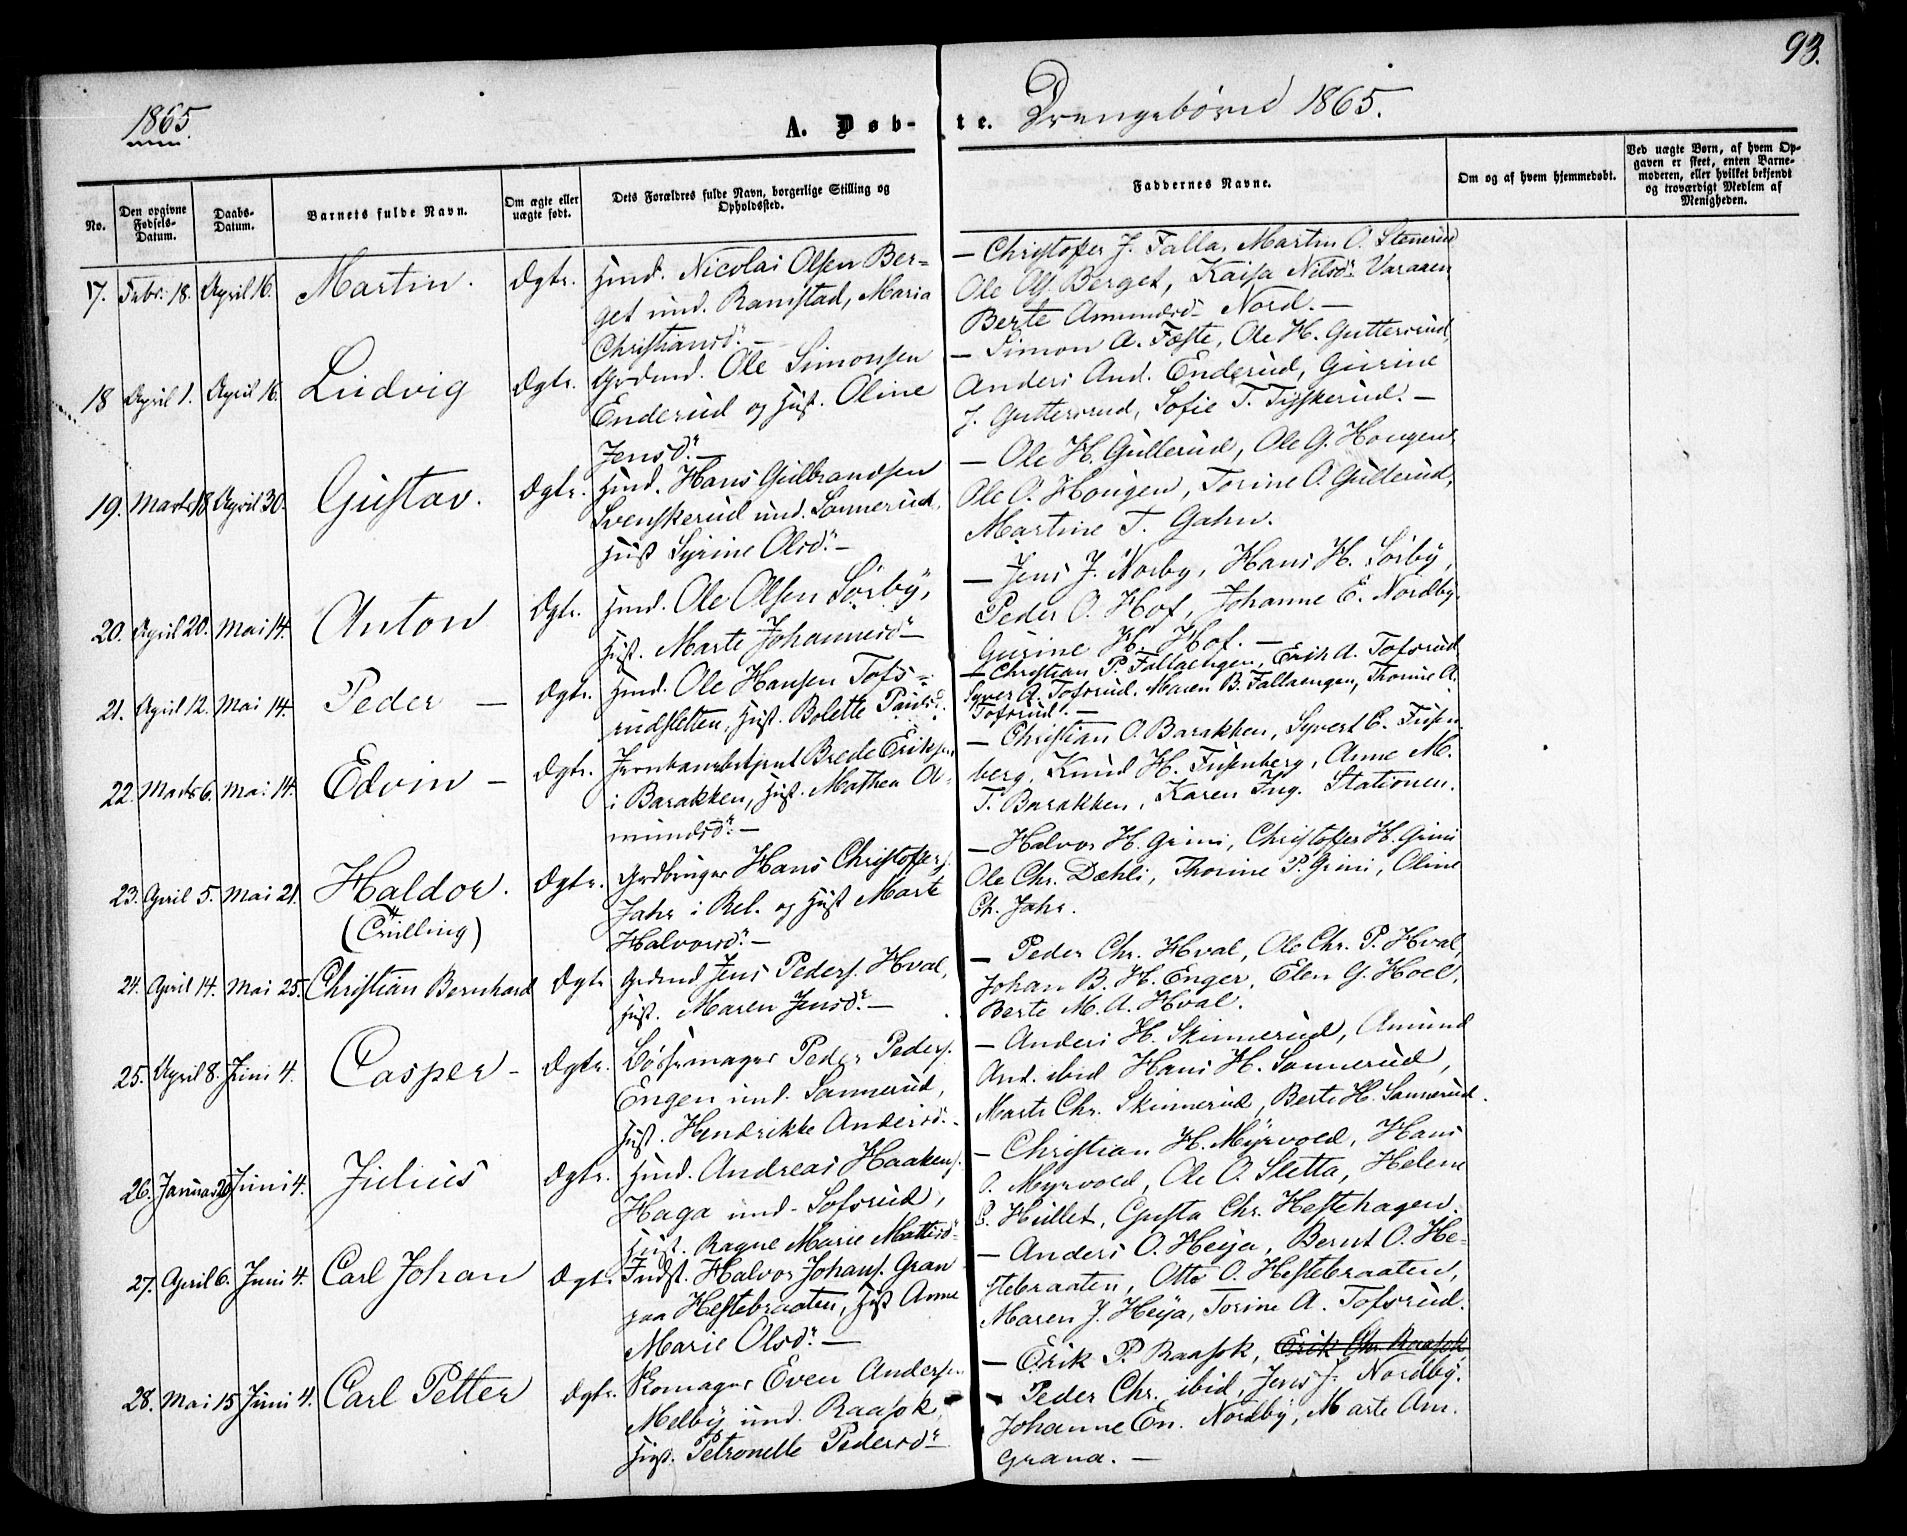 93.
1865.
A. Døb-te. Drengebørn 1865.
No.
Den opgivne Fødsels-Datum.
Daabs-Datum.
Barnets fulde Navn.
Om ægte eller uægte født.
Dets Forældres fulde Navn, borgerlige Stilling og Opholdssted.
Faddernes Navne.
Om og af hvem hjemmedøbt.
Ved uægte Børn, af hvem Opgaven er skeet, enten Barnemoderen, eller hvilket bekjendt og troværdigt Medlem af Menigheden.
17. Febr. 18. April 16. Martin. Ægte. Husmd. Nicolai Olsen Ber-
get und. Ramstad, Maria
Christiansd. —
— Christoffer J. Falla, Martin O. Stenerud
Ole Ols. Berget, Kaisa Nilsd. Varaaen
Berte Amundsd. Nord. —
18 April 1. April 16. Ludvig Ægte. Grdmd. Ole Simonsen
Enderud og Hust. Oline
Jensd. —
— Simon A. Fæste, Ole H. Guttersrud,
Anders And. Enderud, Gurine
J. Guttersrud, Sofie T. Tyskerud. —
19. Marts 18 April 30. Gustav. Ægte. Husmd. Hans Gulbrandsen
Svenskerud und. Sønnerud,
Hust Syrine Olsd. —
— Ole H. Gullerud, Ole G. Hougen
Ole O. Hougen, Torine O. Gullerud,
Martine T. Gahn.
20. April 20. Mai 14. Anton Ægte. Husmd. Ole Olsen Sørby,
Hust. Marte Johannesd. —
— Jens J. Norby, Hans H. Sørby,
Peder O. Hof, Johanne E. Nordby.
Gurine H. Hof. —
21. April 12. Mai 14. Peder — Ægte. Husmd. Ole Hansen Tofs-
rudsletten, Hust. Bolette Paulsd.
— Christian P. Fallaengen, Erik A. Tofsrud
Syver A. Tofsrud. Maren B. Fallaengen, Thorine A.
Tofsrud. —
22. Marts 6. Mai 14. Edvin — Ægte. Jernbanebetjent Brede Eriksen
i Barakken, Hust. Mathea A-
mundsd. —
— Christian O. Barakken, Syvert E. Fusen
berg, Knud H. Fusenberg, Anne M.
T. Barakken, Karen Ing. Stationen.
23. April 5. Mai 21. Haldor. Ægte. Grdbruger Hans Christoffers.
(Tvilling)
Jahr i Bel. og Hust Marte
Halvorsd. —
— Halvor H. Grini, Christoffer H. Grini
Ole Chr. Dæhli, Thorine P. Grini, Oline
Ch. Jahr.
24. April 14. Mai 25. Christian Bernhard Ægte Grdmd Jens Peders. Hval,
Hust. Maren Jensd. —
— Peder Chr. Hval, Ole Chr. P. Hval,
Johan B. H. Enger, Elen G. Hoel,
Berte M. A. Hval.
25. April 8. Juni 4. Casper — Ægte. Bøssemager Peder Peders.
Engen und. Sønnerud,
Hust. Hendrikke Andersd. —
— Anders H. Skinnerud, Amund
And. ibid Hans H. Sønnerud,
Marte Chr. Skinnerud, Berte H. Sønnerud.
26. Januar 20 Juni 4. Julius Ægte. Husmd. Andreas Haakens.
Haga und. Sofsrud,
Hust. Ragne Marie Mattisd.
— Christian H. Myrvold, Hans
O. Myrvold, Ole O. Sletta, Helene
E. Hullet, Gusta Chr. Hestehagen.
27. April 6. Juni 4. Carl Johan Ægte. Indst. Halvor Johans. Gran
paa Hestebraaten, Hust Anne
Marie Olsd. —
— Anders O. Heya, Bernt O. He-
stebraaten, Otto O. Hestebraaten,
Maren J. Heya, Torine A. Tofsrud.
28. Mai 15 Juni 4. Carl Petter Ægte. Skomager Even Andersen
Melby und. Raasok,
Hust. Petronelle Pedersd.
— Erik P. Raasok, Erik Chr. Raasok
— Peder Chr. ibid, Jens J. Nordby.
Johanne En. Nordby, Marte Am.
Grana. —